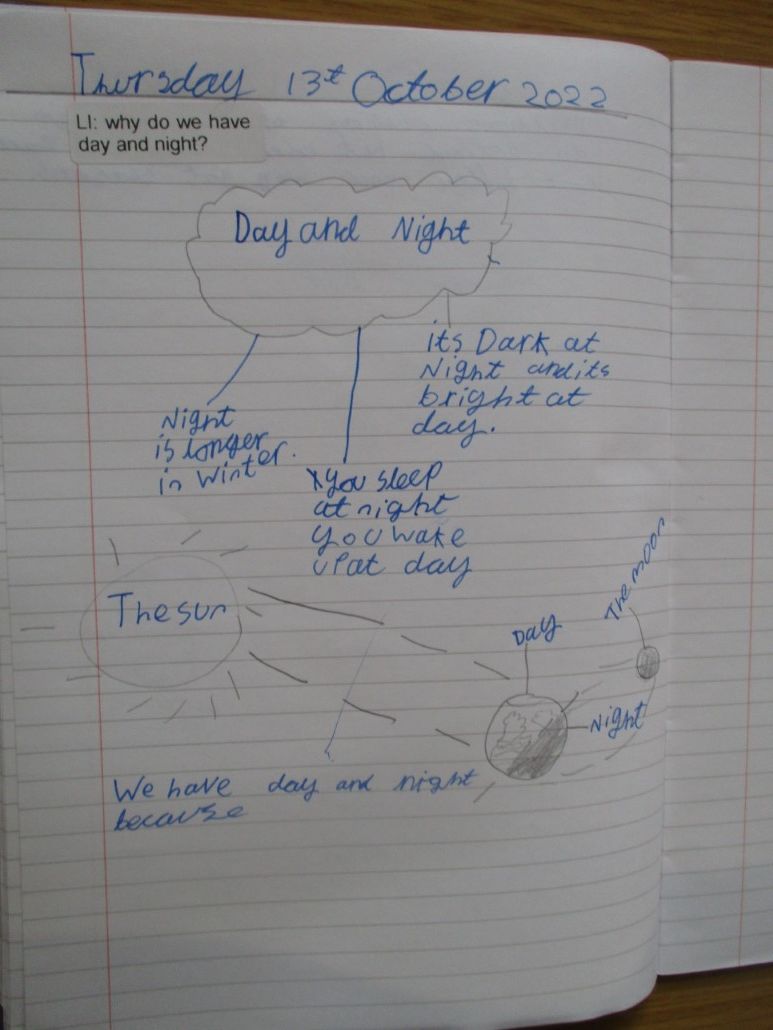 Thursday 13th October 2022
LI: why do we have
day and night?
Day and Night
its Dark at
Night and its
bright at
day.
Night
is longer
in Winter.
You sleep
at night
you wake
up at day
The sun
The moon
Day
Night
We have day and night
because